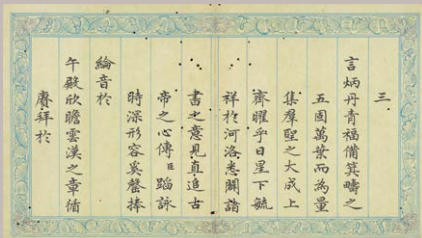 三
言炳丹青福備箕疇之
五固萬葉而為量
集羣聖之大成上
齊曜乎日星下毓
祥於河洛悉關諧
書之意見直追古
帝之心傳臣蹈詠
時深形容奚罄捧
綸音於
午殿欣瞻雲漢之章循
賡拜於